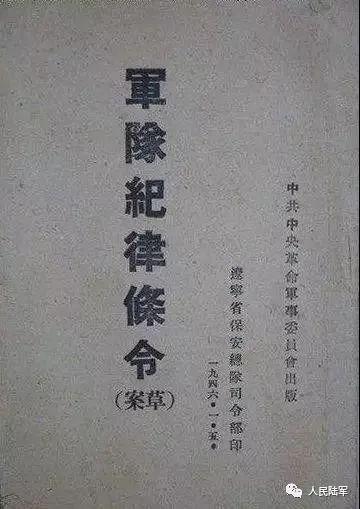 中共中央革命軍事委員會出版
遼寧省保安總隊司令部印
一九四六·一·五·
軍隊紀律條令
(草案)
人民陆军